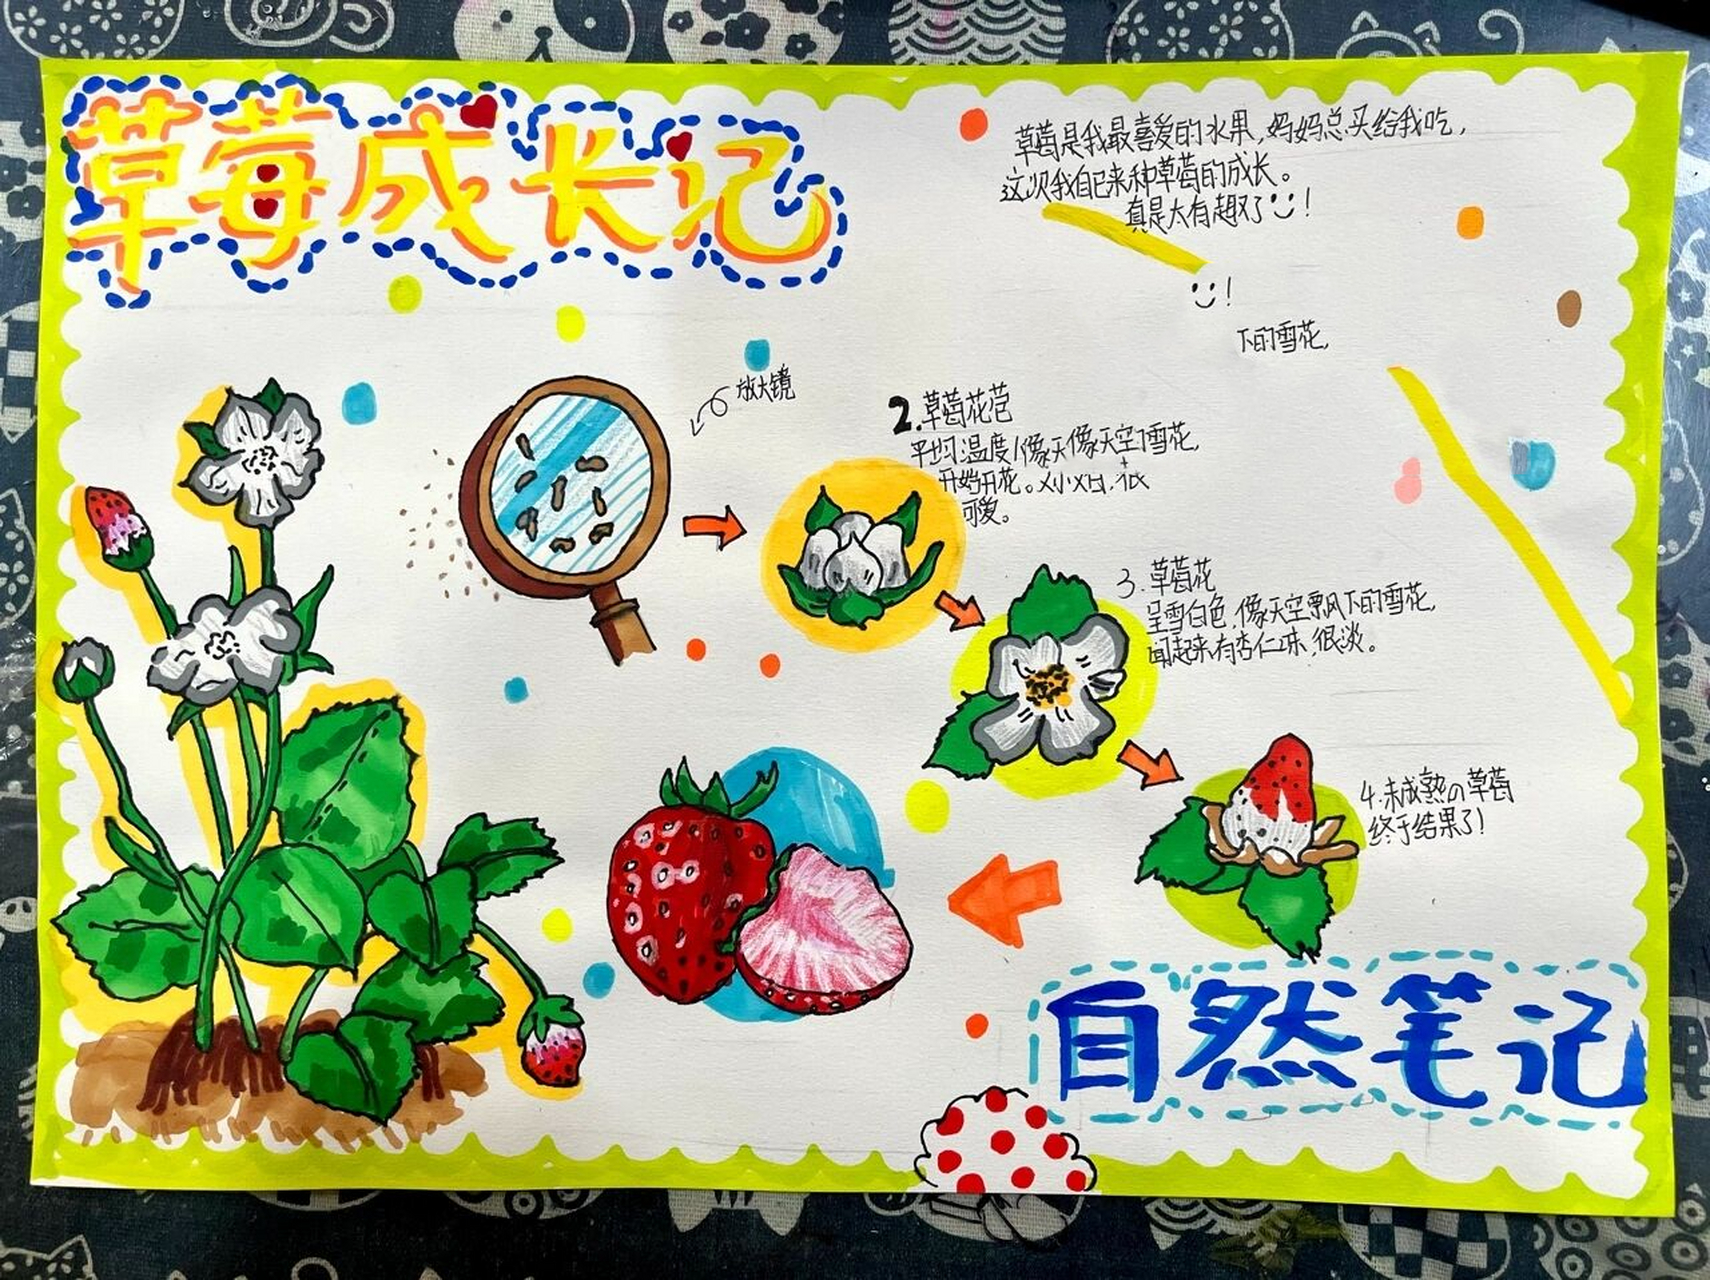 草莓成长记
草莓是我最喜爱的水果,妈妈总买给我吃,
这次我自己来种草莓的成长。
真是太有趣了!
!
下的雪花,
放大镜
2.草莓花苞
平均温度1像天像天空下雪花,
开始开花。又小又白,很
可爱。
3.草莓花
呈雪白色,像天空飘下的雪花,
闻起来有杏仁味,很淡。
4.未成熟の草莓
终于结果了!
自然笔记